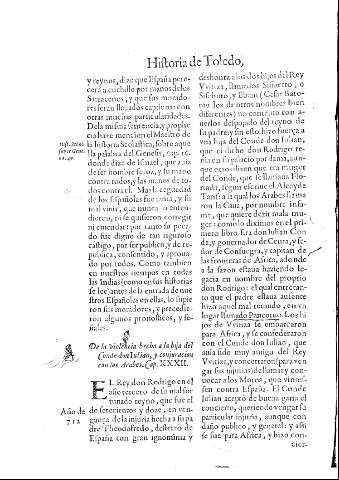 Historia de Toledo,
y reynos, dize que España pere-
cerá a cuchillo por manos de los
Sarracenos, y que sus morado-
res seran lleuados captiuos: con
otras muchas particularidades.
De la misma sentencia, y prophe
cia haze mencion el Maestro de
la historia Scolastica, sobre aque
lla palabra del Genesis, cap. 16.
donde dize de Ismael, que auia
de ser hombre feroz, y su mano
contra todos, y las manos de to-
dos contra el. Mas la ceguedad
de los Españoles fue tanta, y su
mal viuir, que nunca lo enten-
dieron, ni se quisieron corregir
ni enmendar: por tanto su peca-
do fue digno de tan riguroso
castigo, por ser publico, y de re-
publica, consentido, y aproua-
do por todos. Como tambien
en nuestros tiempos en todas
las Indias (como en sus historias
se lee) antes de la entrada de nue
stros Españoles en ellas, lo supie
ron sus moradores, y precedie-
ron algunos pronosticos, y se-
ñales.
De la violencia hecha a la hija del
Conde don Iulian, y conjuracion
con los Arabes. Cap. XXXII.
EL Rey don Rodrigo en el
año tercero de su mal for
tunado reyno, que fue el
Año de
712
de setecientos y doze, en ven-
gança de la injuria hecha a su pa
dre Theodofredo, desterró de
España con gran ignominia y
deshonra a los dos hijos del Rey
Vvitiza, llamados Sisserto, o
Sisebuto, y Ebam (Cesar Baro-
nio los da otros nombres bien
diferentes) no contento con a-
uerlos despojado del reyno de
su padre; tras esto hizo fuerça a
vna hija del Conde don Iulian,
que el dicho don Rodrigo te-
nia en su palacio por dama, aun-
que otros dizen que era muger
del Conde, que se llamaua Flo-
rinda, segun escriue el Alcayde
Tarif: a la qual los Arabes llama
ron la Caua, por nombre infa-
me, que quiere dezir mala mu-
ger: como lo diximos en el pri-
mero libro. Era don Iulian Con
de, y gouernador de Ceuta, y se-
ñor de Consuegra, y capitan de
las fronteras de Africa, adonde
a la sazon estaua haziendo le-
gacia en nombre del proprio
don Rodrigo: el qual entretan-
to que el padre estaua ausente
hizo aquel mal recaudo, en vn
lugar llamado Pancoruo. Los hi-
jos de Vvitiza se embarcaron
para Africa, y se confederaron
con el Conde don Iulian, que
auia sido muy amigo del Rey
Vvitiza, y concertaron (para ven
gar sus injurias) de llamar y con-
uocar a los Moros, que vinies-
sen contra España. El Conde
Iulian aceptó de buena gana el
concierto, queriendo vengar su
particular injuria, aunque con
daño publico, y general: y assi
se fue para Africa, y hizo con-
cier-